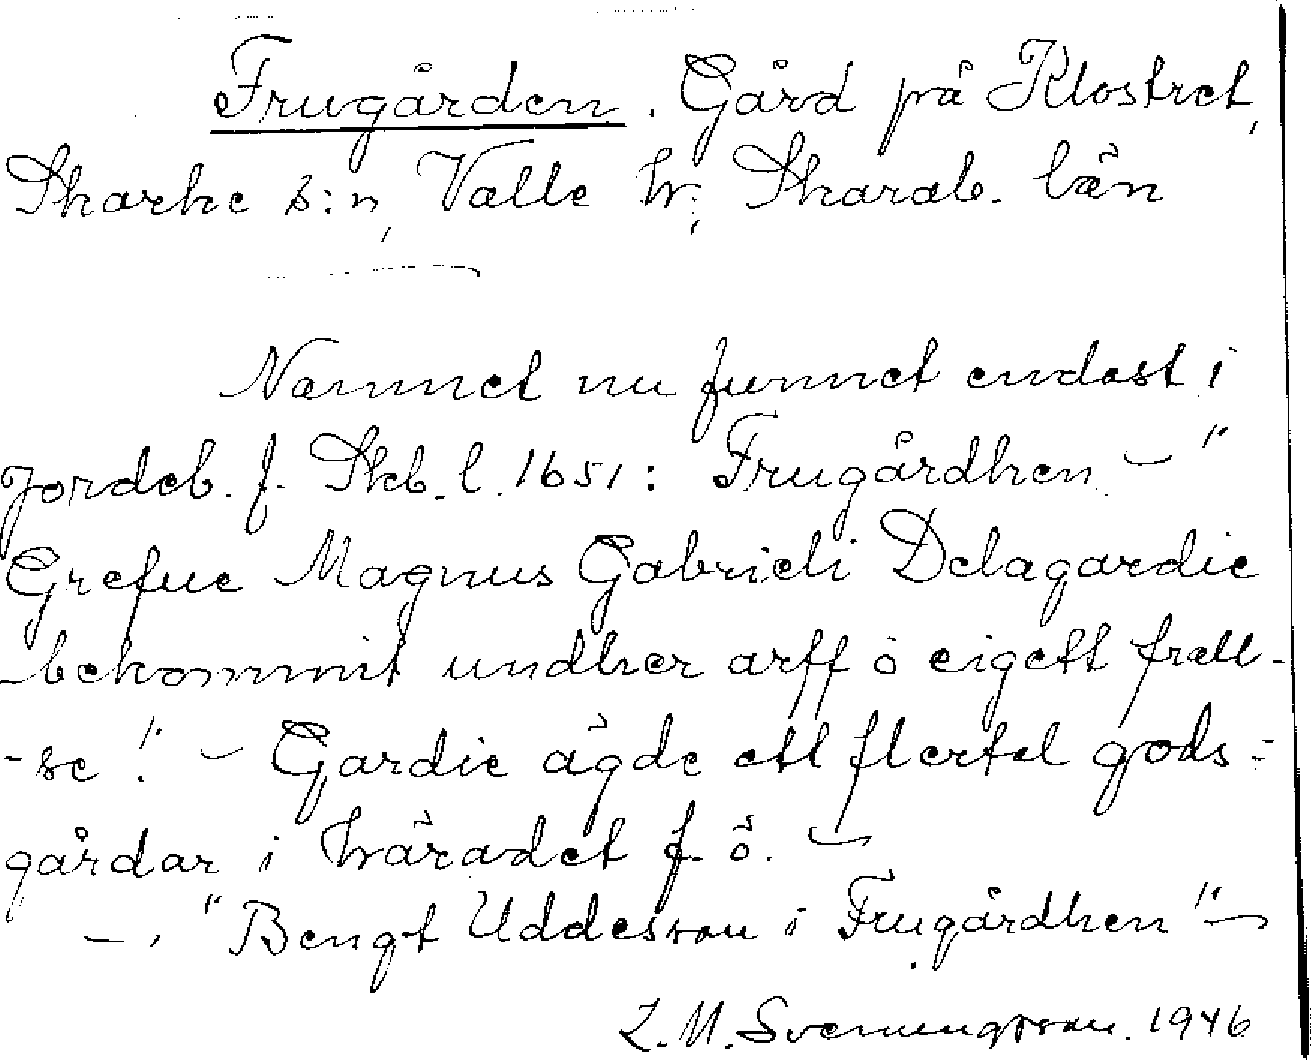 Frugården. Gård på Klostret,
Skarke s:n, Valle hr; Skarab. län
Namnet nu funnet endast i
Jordeb. f. Skb. l. 1651: Frugårdhen – "
Grefue Magnus Gabrieli Delagardie
bekommit undher arff ö eigett fräll-
-se". – Gardie ägde ett flertal gods-
gårdar i häradet f. ö. –
–, "Bengt Uddesson i Frugårdhen" –
L. M. Svenungsson. 1946